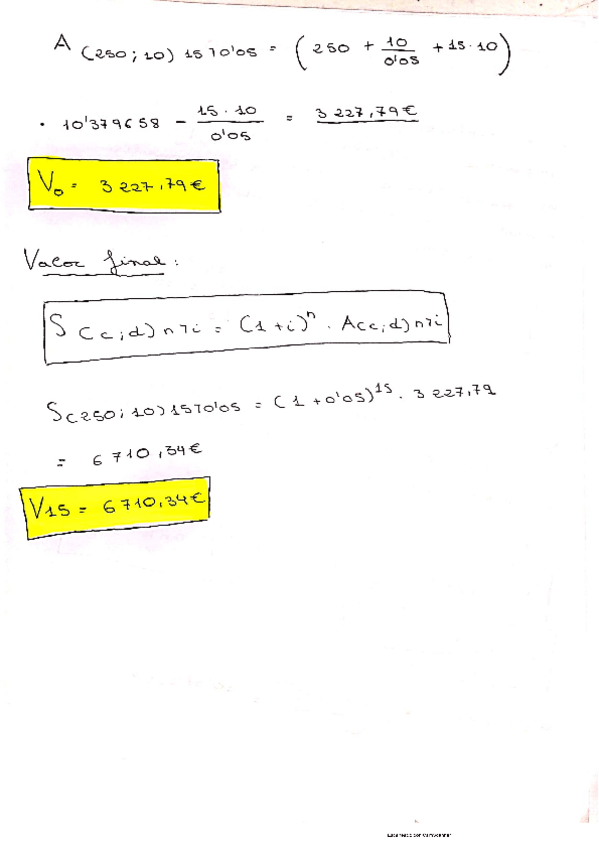 A (250;10) 15 7 0'05 = (250 + 10/0'05 + 15·10)
· 10'379658 - 15·10/0'05 = 3 227,79€
V₀ = 3 227,79€
Valor final:
S (c;d) n 7 i = (1+i)ⁿ · A(c;d) n 7 i
S(250;10) 15 7 0'05 = (1+0'05)¹⁵ · 3 227,79
= 6 710,34€
V15 = 6 710,34€